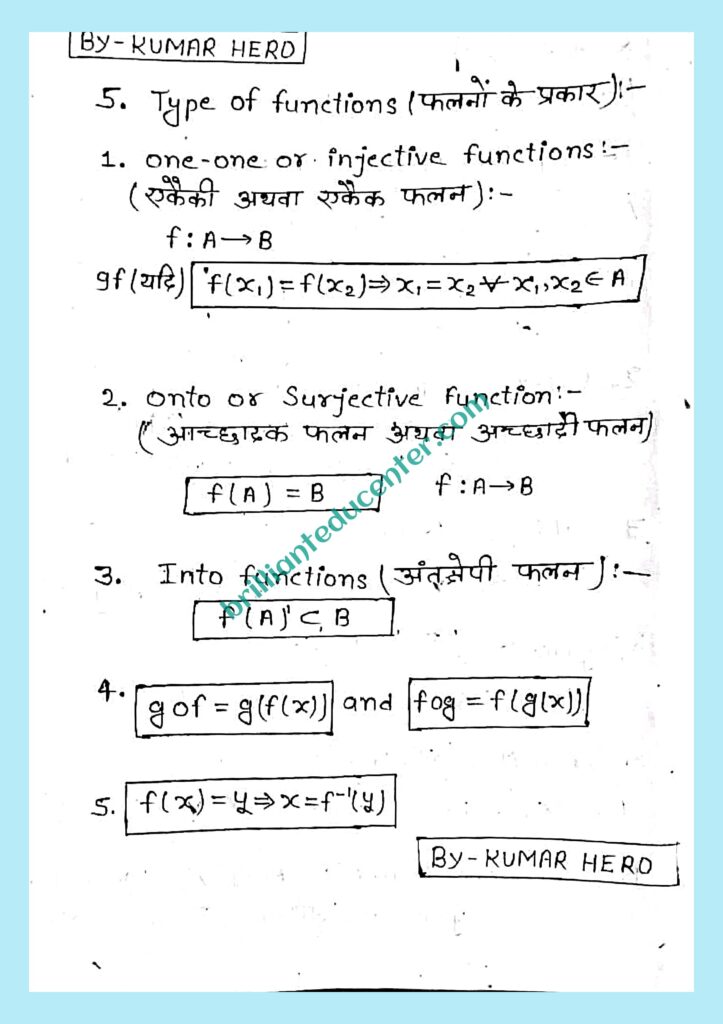 BY-KUMAR HERO
5. Type of functions (फलनों के प्रकार):-
1. one-one or injective functions:-
(एकैकी अथवा एकैक फलन):-
f: A→B
If (यदि) f(x₁)=f(x₂)⇒x₁=x₂ ∀ x₁,x₂∈A
2. Onto or Surjective function:-
(आच्छादक फलन अथवा अच्छादी फलन)
f(A) = B f: A→B
3. Into functions (अंतःक्षेपी फलन):-
f(A) ⊂ B
4. gof = g(f(x)) and fog = f(g(x))
5. f(x)=y⇒x=f⁻¹(y)
By-KUMAR HERO
brillianteducenter.com